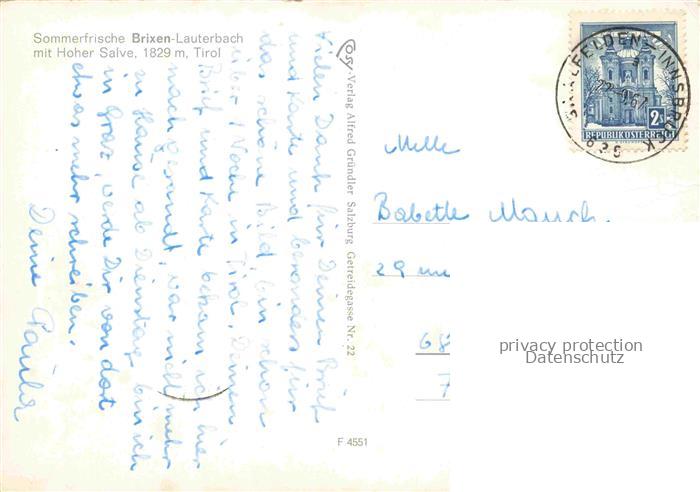 Sommerfrische Brixen-Lauterbach
mit Hoher Salve, 1829 m, Tirol
Vielen Dank für Deinen Brief
und Karte und besonders für
das schöne Bild, bin schon
über 1 Woche in Tirol, Deinen
Brief und Karte bekam ich hier
nach gesandt, war nicht mehr
zu Hause ab Dienstag bin ich
in Graz, werde Dir von dort
etwas mehr schreiben.
Deine Paula
Cosy-Verlag Alfred Gründler Salzburg Getreidegasse Nr. 22
F 4551
INNSBRUCK
2
REPUBLIK ÖSTERREICH
Melle
Babette
29
68
privacy protection
Datenschutz